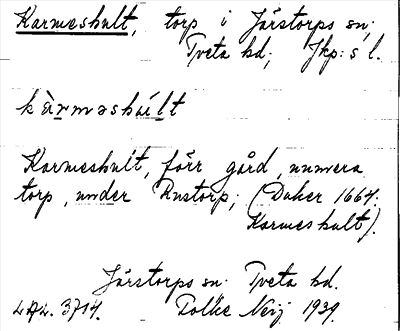 Karmeshult, torp i Järstorps sn;
Tveta hd; Jkp:s l.
kàrməshúlt
Karmeshult, förr gård, numera
torp, under Rustorp; (Duker 1664.
Karmeshult).
Järstorps sn. Tveta hd.
LAL. 3714. Folke Neij 1939.